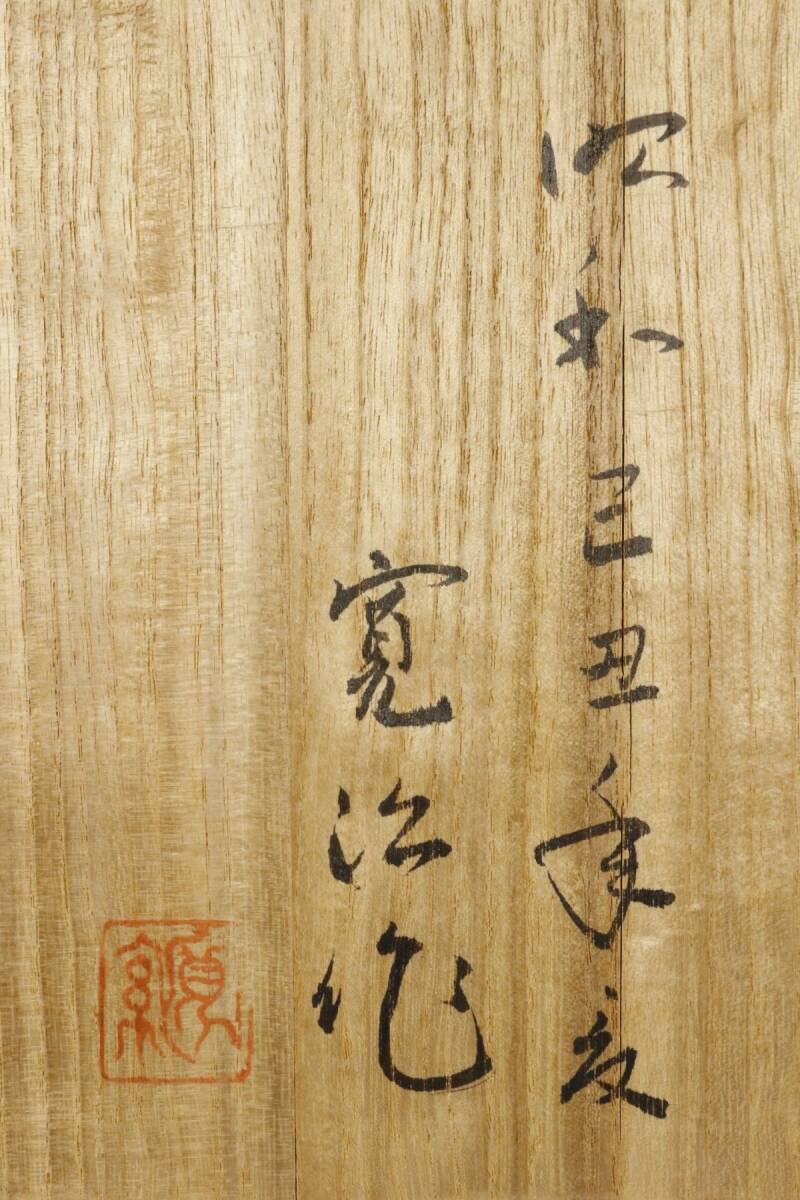 昭和己丑年夏
寛治作